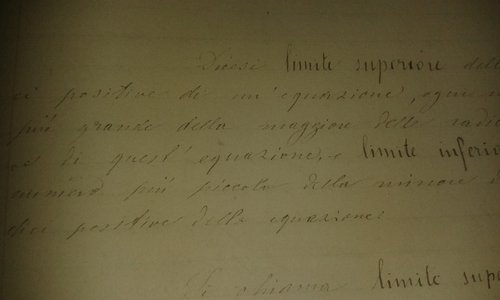 Dicesi limite superiore delle
ci positive di un'equazione, ogni
più grande della maggiore delle radi
di quest'equazione, e limite inferio
numero più piccolo della minore
dici positive delle equazione.
Si chiama limite supe